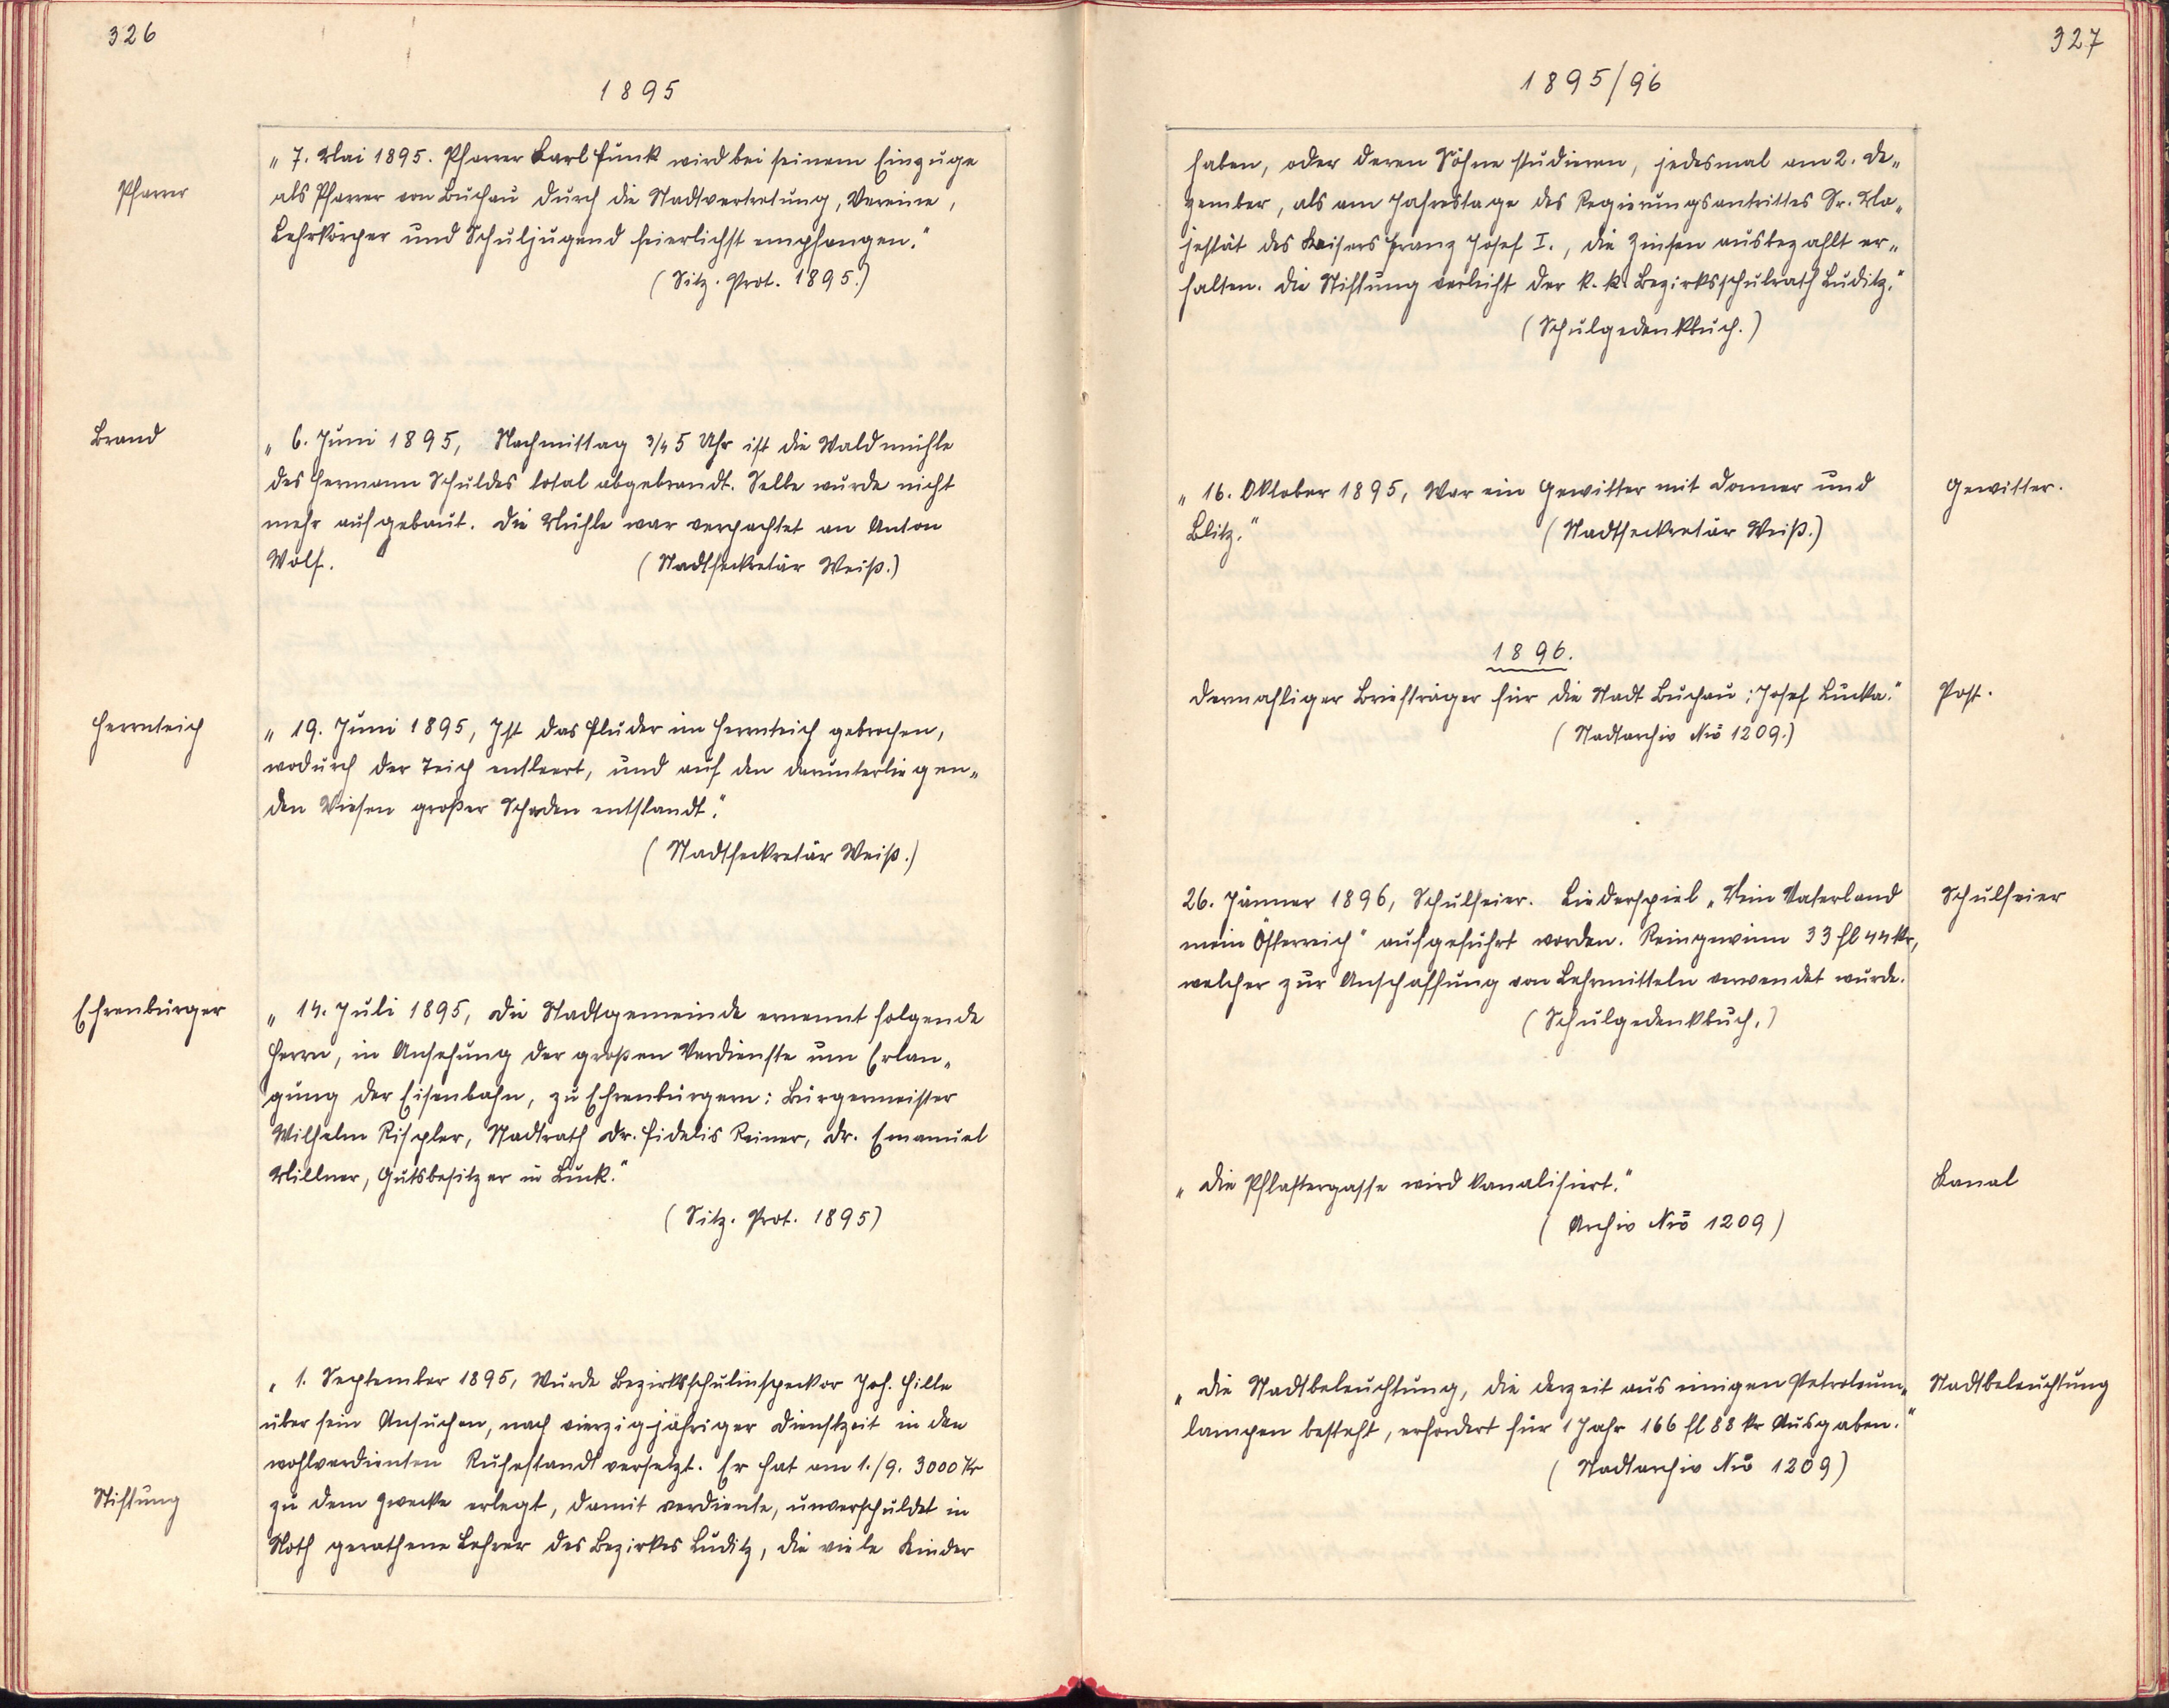 326
1895
Pfarrer
„ 7. Mai 1895. Pfarrer Karl Funk wird bei seinem Einzuge
als Pfarrer von Buchau durch die Stadtvertretung, Vereine,
Lehrkörper und Schuljugend feierlichst empfangen."
(Sitz. Prot. 1895.)
Brand
„ 6. Juni 1895, Nachmittag 3/4 5 Uhr ist die Waldmühle
des Hermann Schuldes total abgebrandt. Selbe wurde nicht
mehr aufgebaut. Die Mühle war verpachtet an Anton
Wolf.
(Stadtseckretär Weiß.)
Herrnteich
„ 19. Juni 1895, Ist das Fluder im Herrnteich gebrochen,
wodurch der Teich entleert, und auf den darunterliegen„
den Wiesen großer Schaden entstandt."
(Stadtseckretär Weiß.)
Ehrenbürger
„ 14. Juli 1895, Die Stadtgemeinde ernennt folgende
Herrn, in Ansehung der großen Verdienste um Erlan„
gung der Eisenbahn, zu Ehrenbürgern: Bürgermeister
Wilhelm Rispler, Stadtrath Dr. Fidelis Reiner, Dr. Emanuel
Millner, Gutsbesitzer in Luck."
(Sitz. Prot. 1895)
„ 1. September 1895, Wurde Bezirksschulinspecktor Joh. Hille
über sein Ansuchen, nach vierzigjähriger Dienstzeit in den
wohlverdienten Ruhestandt versetzt. Er hat am 1./9. 3000 Kr
Stiftung
zu dem Zwecke erlegt, damit verdiente, unverschuldet in
Noth gerathene Lehrer des Bezirkes Luditz, die viele Kinder
327
1895/96
haben, oder deren Söhne studieren, jedesmal am 2. De„
zember, als am Jahrestage des Regierungsantrittes Sr. Ma„
jestät des Kaisers Franz Josef I., die Zinsen ausbezahlt er„
halten. Die Stiftung verleiht der k. k. Bezirksschulrath Luditz."
(Schulgedenkbuch.)
„ 16. Oktober 1895, War ein Gewitter mit Donner und
Blitz."
(Stadtseckretär Weiß.)
Gewitter.
1896.
Dermahliger Briefträger für die Stadt Buchau: Josef Lucka."
(Stadtarchiv Nro 1209.)
Post.
26. Jänner 1896, Schulfeier. Liederspiel „Mein Vaterland
mein Österreich" aufgeführt worden. Reingewinn 33 fl 44 kr,
welcher zur Anschaffung von Lehrmitteln verwendet wurde.
(Schulgedenkbuch.)
Schulfeier
„ Die Pflastergasse wird kanalisiert."
(Archiv Nro 1209)
Kanal
„ Die Stadtbeleuchtung, die derzeit aus einigen Petroleum„
lampen besteht, erfordert für 1 Jahr 166 fl 88 kr Ausgaben."
(Stadtarchiv Nro 1209)
Stadtbeleuchtung